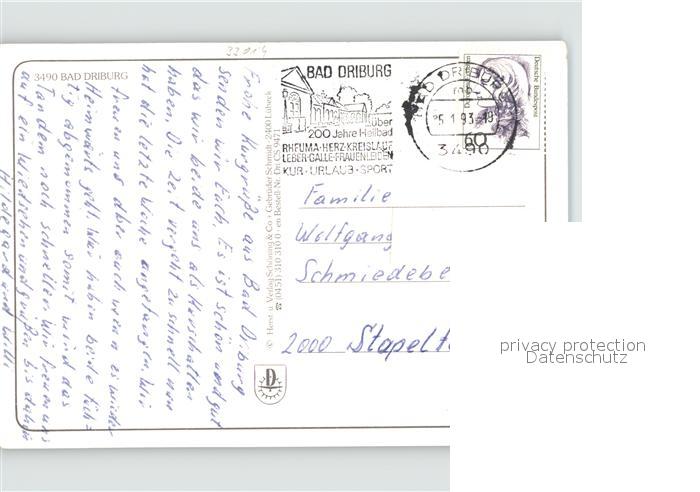 33014
3490 BAD DRIBURG
BAD DRIBURG
über
200 Jahre Heilbad
RHEUMA·HERZ·KREISLAUF
LEBER-GALLE-FRAUENLEIDEN
KUR·URLAUB·SPORT
BAD DRIBURG
mb
-5.1.93-18
3490
Deutsche Bundespost
60
Frohe Kurgrüße aus Bad Driburg
senden wir Euch. Es ist schön und gut
das wir beide uns
haben. Die Zeit vergeht zu schnell nun
hat die letzte Woche angefangen. Wir
freuen uns aber auch wenn es wieder
Heimwärts geht. Wir haben beide tüch=
tig abgenommen somit wird das
noch schneller. Wir freuen uns
auf ein Wiedersehen und grüßen bis dahin
Hildegard und Willi
© Herst. u. Verlag Schöning & Co · Gebrüder Schmidt · 2400 Lübeck
☎ (0451) 310 310 0 · en Bestell-Nr. Dri CS 9471
D
Familie
Wolfgang
Schmiedebe
2000 Stapelf
privacy protection
Datenschutz